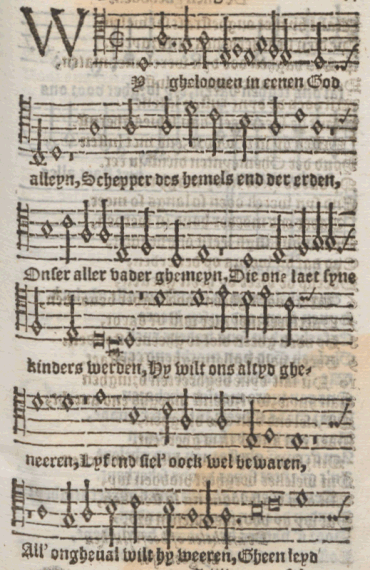 WY ghelooven in eenen God
alleyn, Schepper des hemels end der erden,
Onser aller vader ghemeyn, Die ons laet syne
kinders werden, Hy wilt ons altyd ghe-
neeren, Lyf end siel' oock wel bewaren,
All' ongheual wilt hy weeren, Gheen leyd